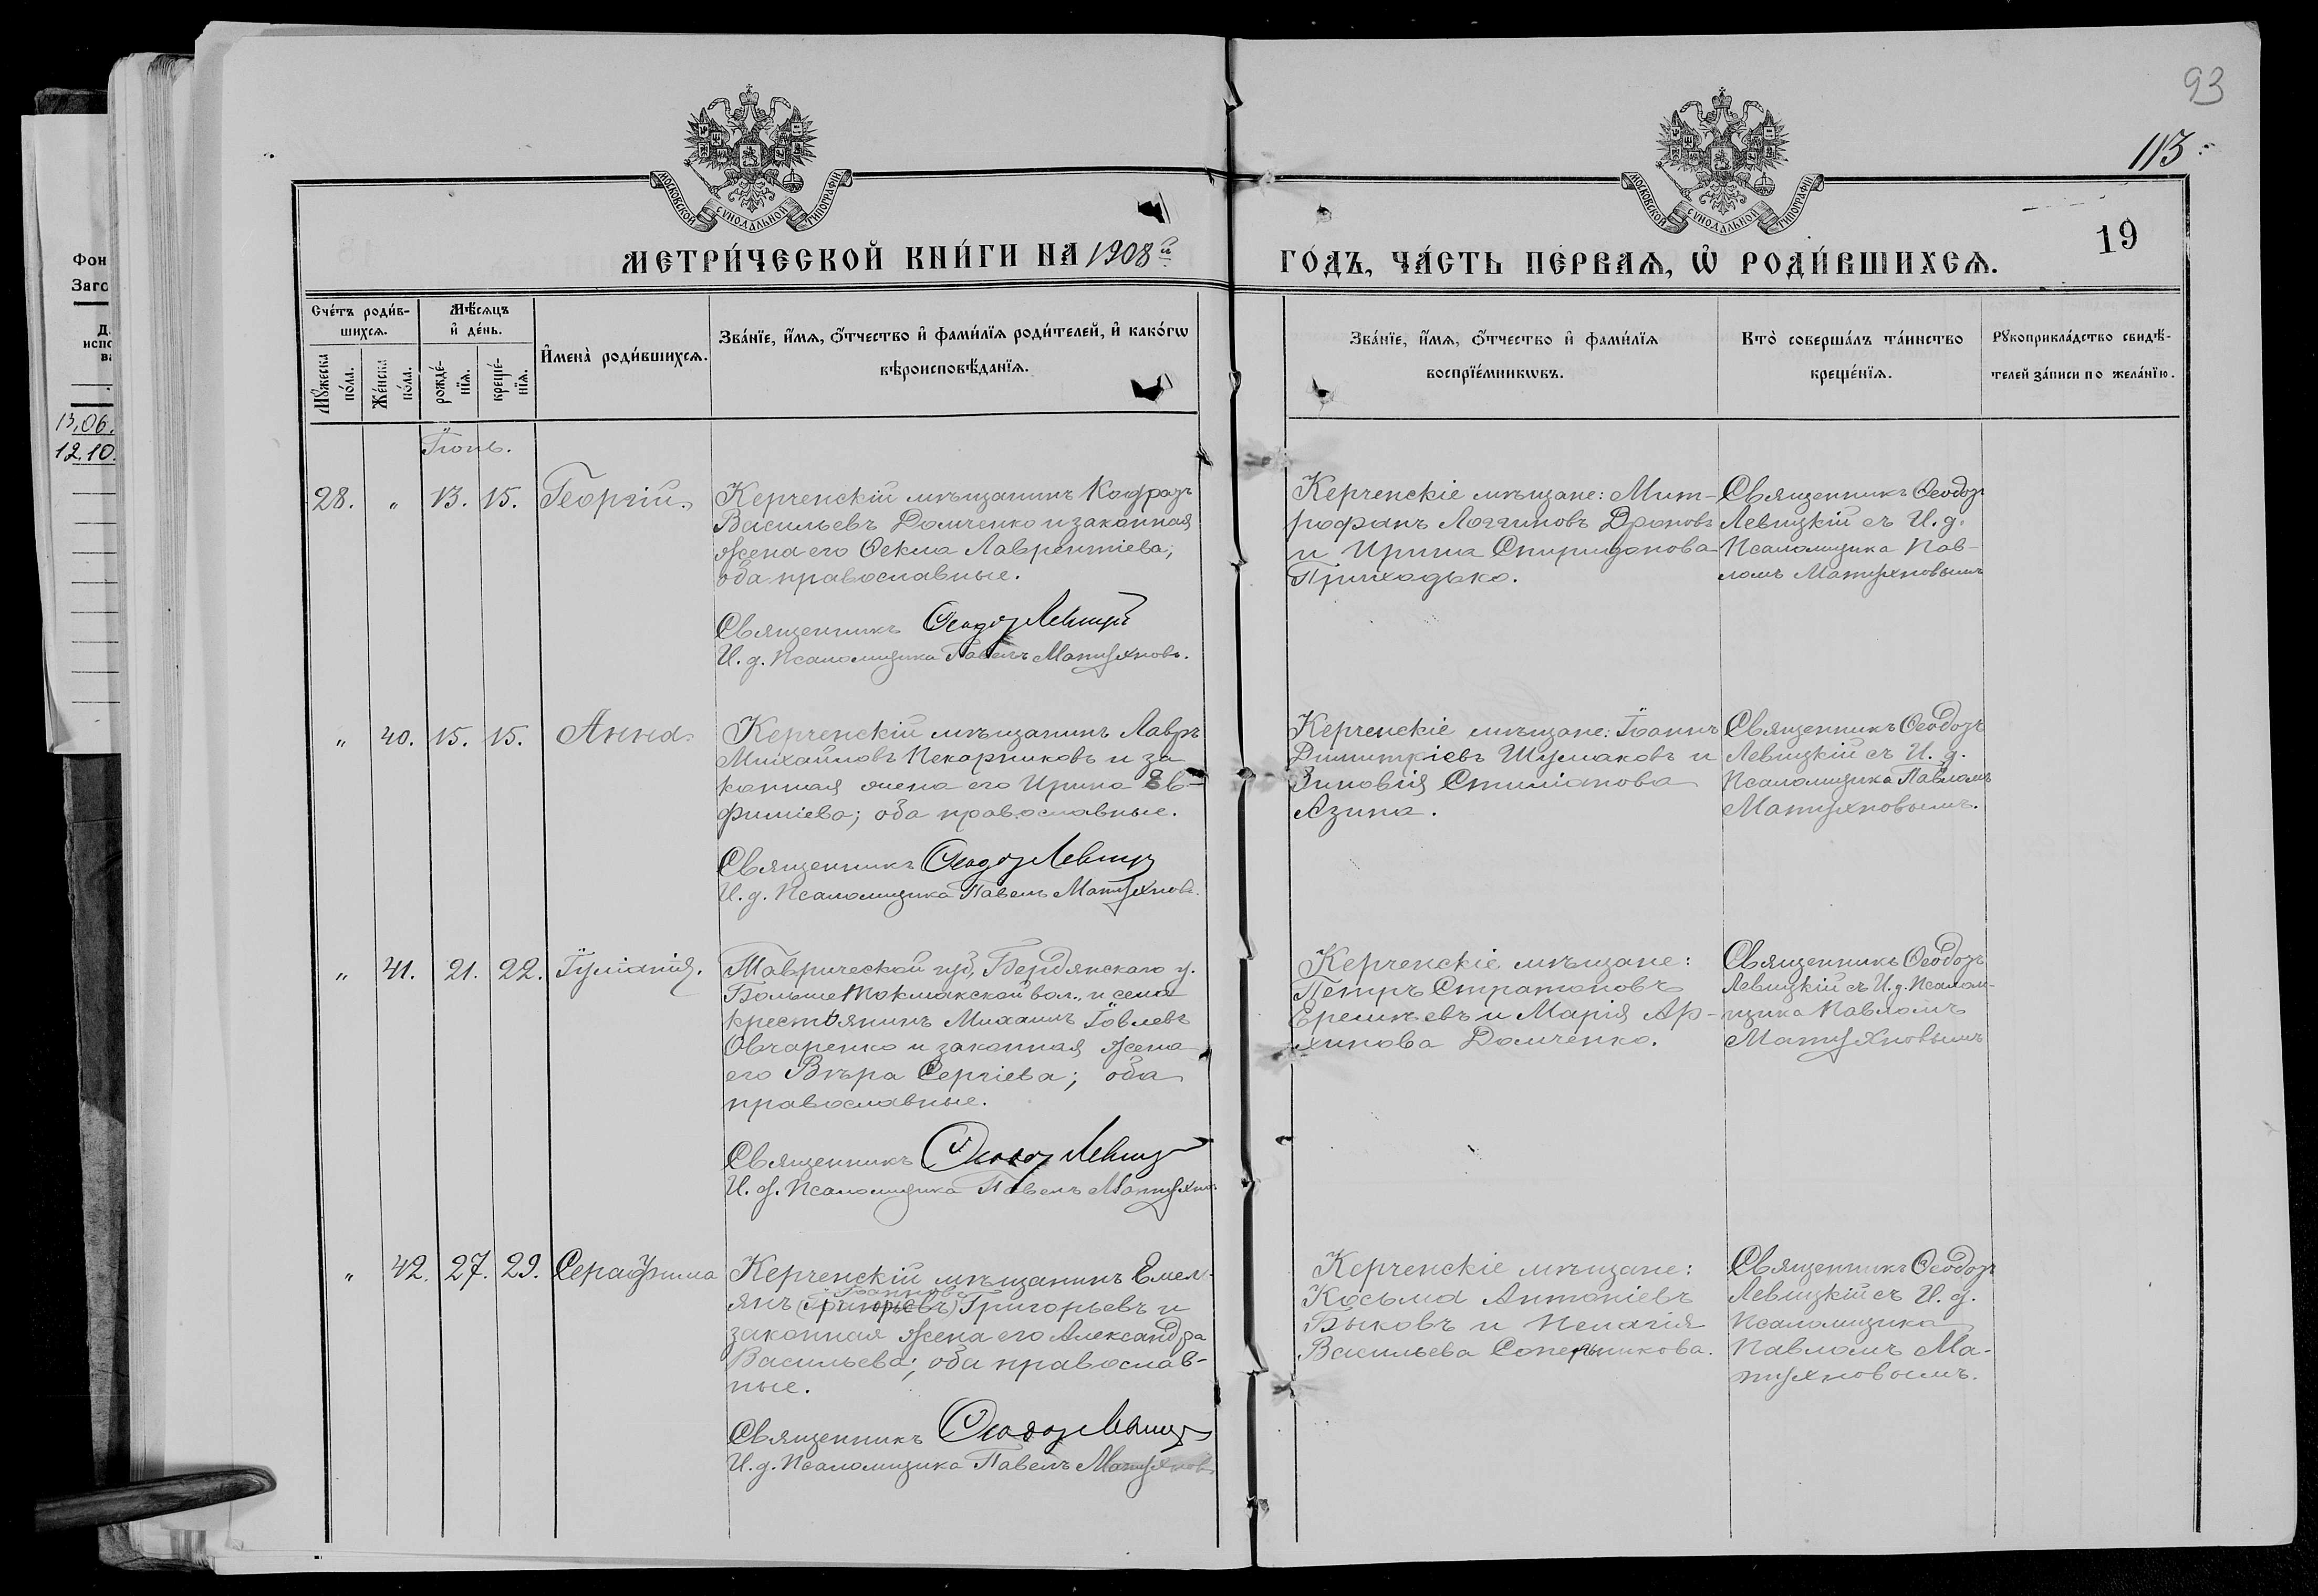 93
113
19
МОСКОВСКОЙ СѴНОДАЛЬНОЙ ТИПОГРАФІИ
МОСКОВСКОЙ СѴНОДАЛЬНОЙ ТИПОГРАФІИ
МЕТРИ́ЧЕСКОЙ КНИ́ГИ НА 1908й
ГО́ДЪ, ЧА́СТЬ ПЕ́РВАѦ, Ѽ РОДИ́ВШИХСѦ.
Сче́тъ роди́в-
шихсѧ.
Мѣ́сѧцъ
и҆ де́нь.
Мꙋ́жеска
по́ла.
Же́нска
по́ла.
рожде́-
нїѧ.
креще́-
нїѧ.
И҆мена̀ роди́вшихсѧ.
Зва́нїе, и҆́мѧ, ѻ҆́тчество и҆ фами́лїѧ роди́телей, и҆ како́гѡ
вѣроисповѣ́данїѧ.
Зва́нїе, и҆́мѧ, ѻ҆́тчество и҆ фами́лїѧ
воспрїе́мникѡвъ.
Кто̀ соверша́лъ та́инство
креще́нїѧ.
Рꙋкоприкла́дство свидѣ́-
телей за́писи по жела́нїю.
Фон
Заго
13.06.
12.10.
Іюнь.
28. " 13. 15. Георгій.
Керченскій мѣщанинъ Кодратъ
Васильевъ Домченко и законная
жена его Ѳекла Лаврентіева;
оба православные.
Священникъ Ѳеодоръ Левицкій
И. д. Псаломщика Павелъ Матухновъ.
Керченскіе мѣщане: Мит-
рофанъ Логгиновъ Дроновъ
и Ирина Спиридонова
Приходько.
Священникъ Ѳеодоръ
Левицкій съ И. д.
Псаломщика Пав-
ломъ Матухновымъ
" 40. 15. 15. Анна.
Керченскій мѣщанинъ Лавръ
Михайловъ Пекарниковъ и за
конная жена его Ирина Ев-
фиміева; оба православные.
Священникъ Ѳеодоръ Левицкій
И. д. Псаломщика Павелъ Матухновъ.
Керченскіе мѣщане: Іоаннъ
Димитріевъ Шумаковъ и
Зиновія Стиліанова
Азина.
Священникъ Ѳеодоръ
Левицкій съ И. д.
Псаломщика Павломъ
Матухновымъ.
" 41. 21. 22. Іуліанія.
Таврической губ., Бердянскаго у.
Больше Токмакской вол., и села
крестьянинъ Михаилъ Іовлевъ
Овчаренко и законная жена
его Вѣра Сергіева; оба
православные.
Священникъ Ѳеодоръ Левицкій
И. д. Псаломщика Павелъ Матухновъ
Керченскіе мѣщане:
Петръ Стратоновъ
Еремѣевъ и Марія Ар-
хипова Домченко.
Священникъ Ѳеодоръ
Левицкій съ И. д. Псалом-
щика Павломъ
Матухновымъ
" 42. 27. 29. Серафима
Керченскій мѣщанинъ Емель-
Іоанновъ
янъ (Григорьевъ) Григорьевъ и
законная жена его Александра
Васильева; оба православ-
ные.
Священникъ Ѳеодоръ Левицкій
И. д. Псаломщика Павелъ Матухновъ
Керченскіе мѣщане:
Косьма Антоніевъ
Быковъ и Пелагія
Васильева Соперникова.
Священникъ Ѳеодоръ
Левицкій съ И. д.
Псаломщика
Павломъ Ма-
тухновымъ.